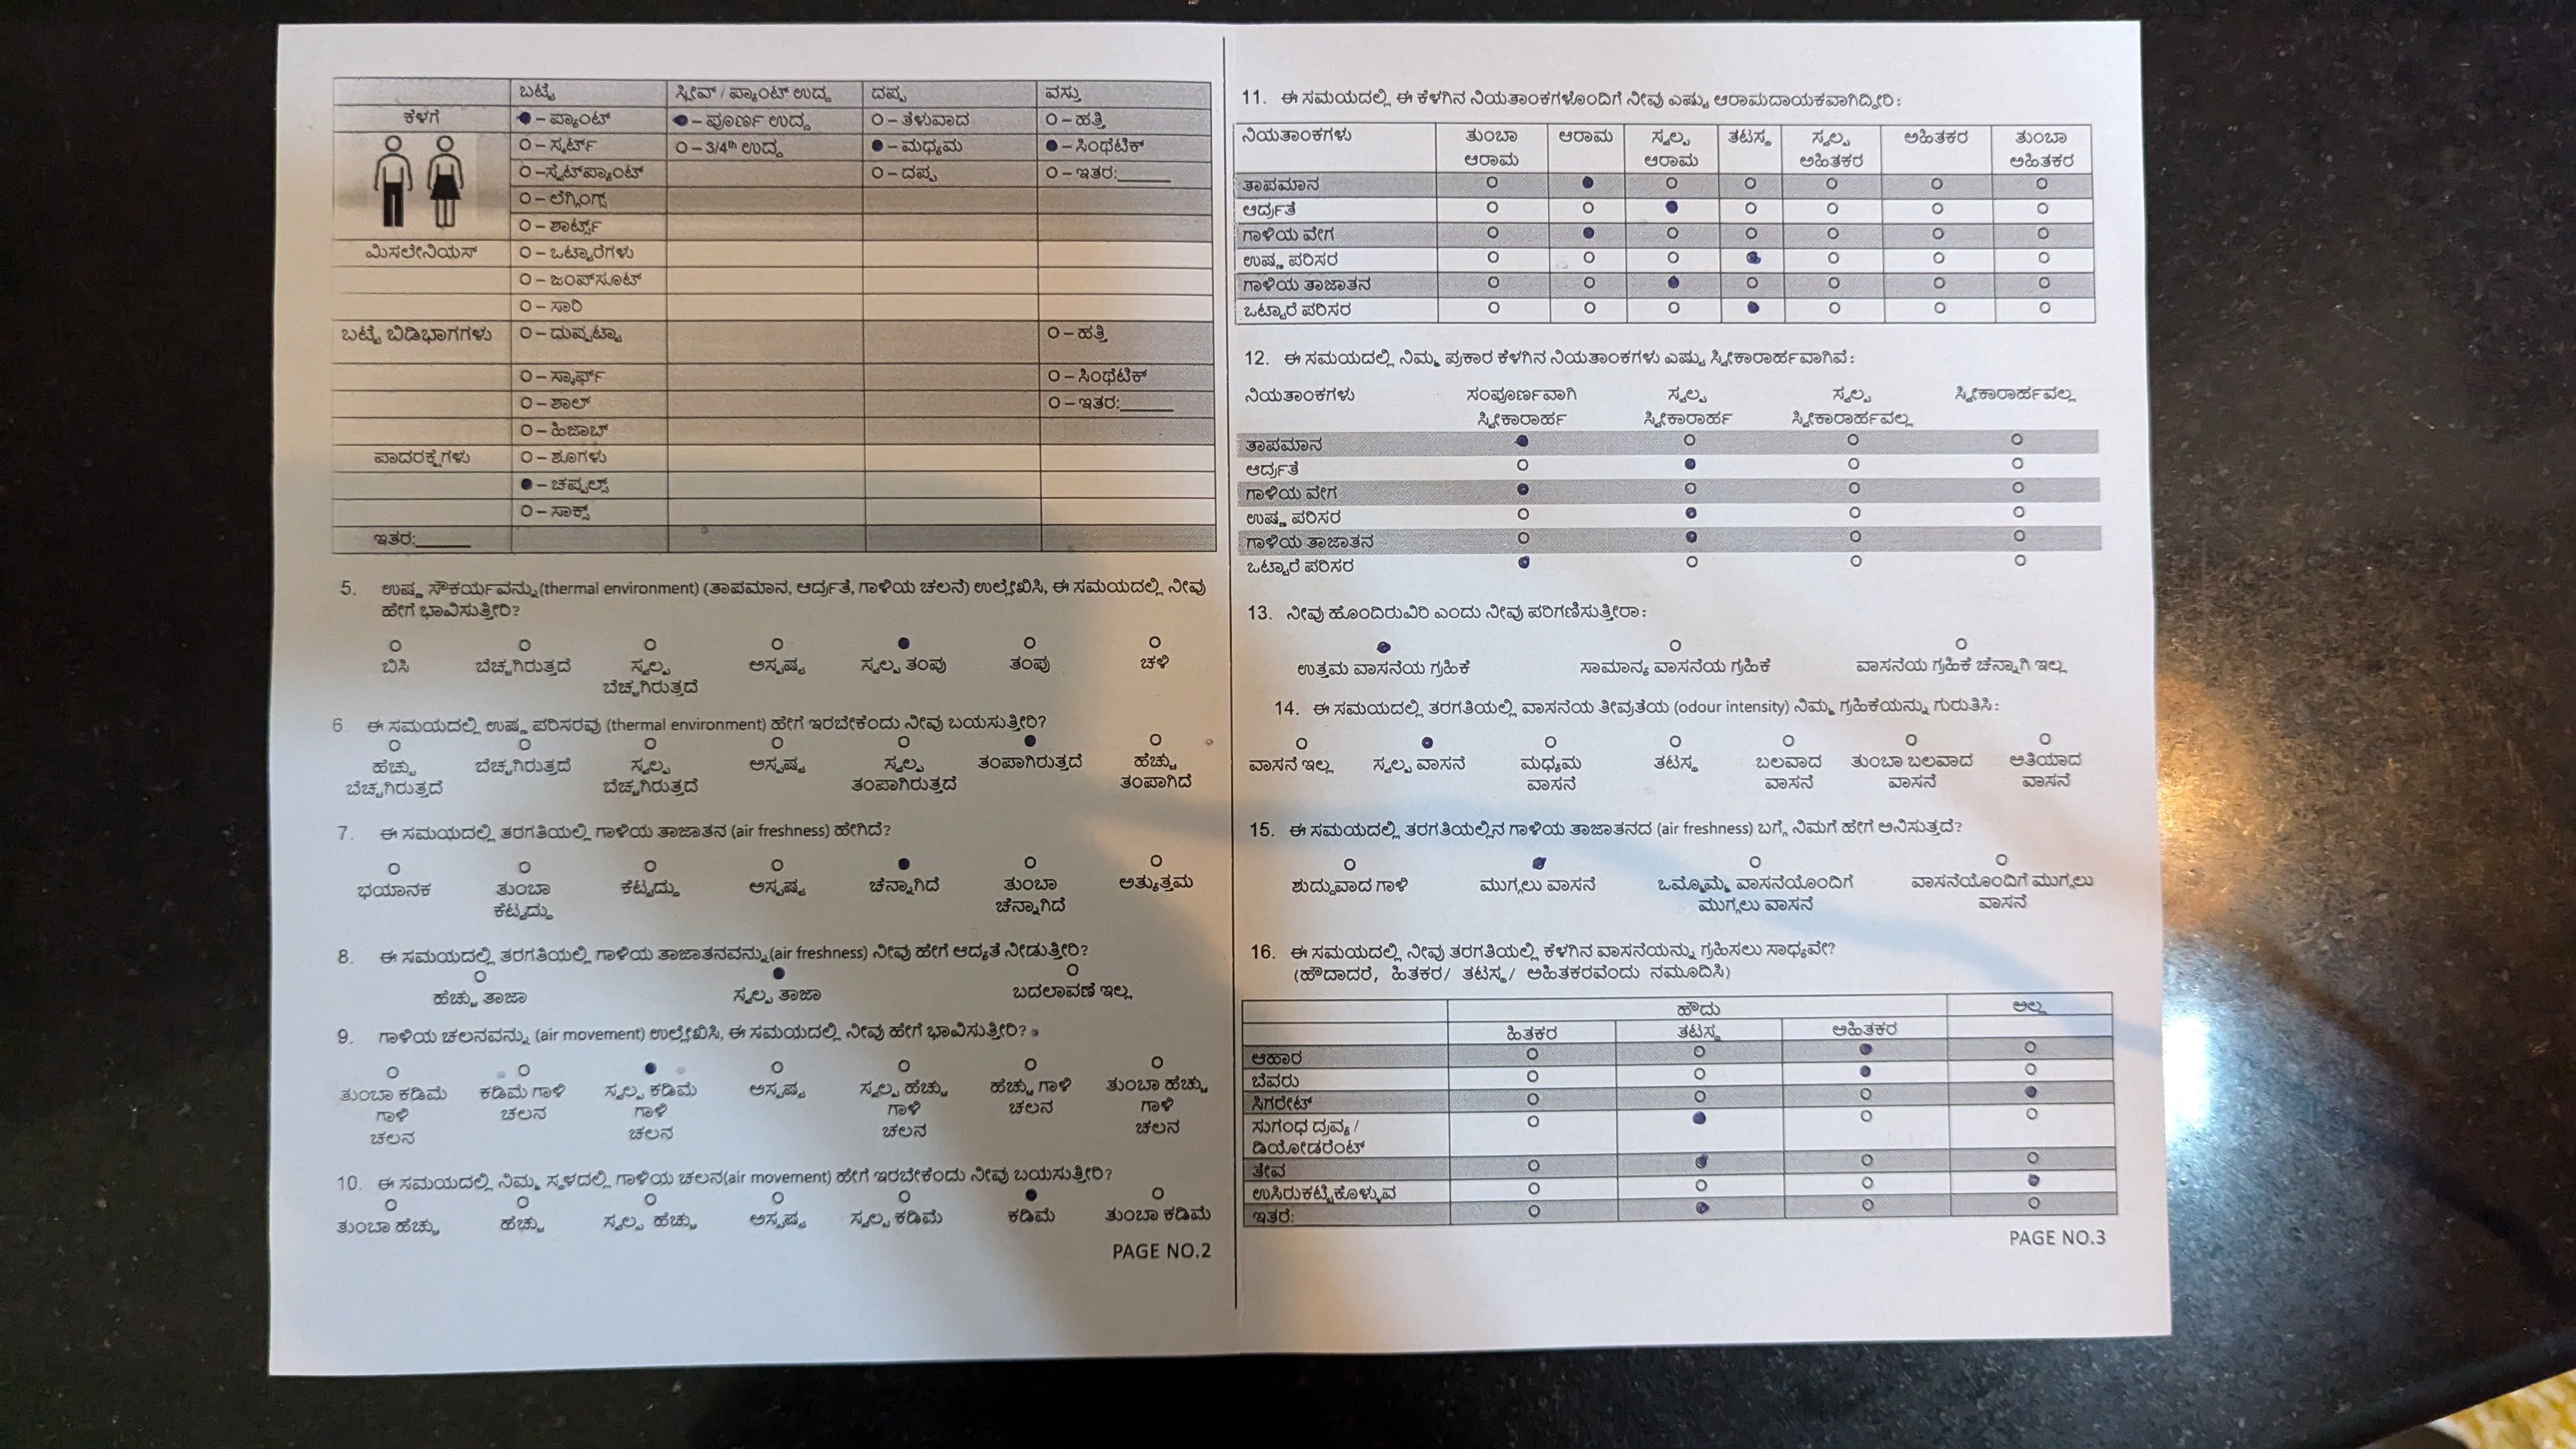 ಬಟ್ಟೆ ಸ್ಲೀವ್ / ಪ್ಯಾಂಟ್ ಉದ್ದ ದಪ್ಪ ವಸ್ತು
ಕೆಳಗೆ ● – ಪ್ಯಾಂಟ್ ● – ಪೂರ್ಣ ಉದ್ದ O – ತೆಳುವಾದ O – ಹತ್ತಿ
O – ಸ್ಕರ್ಟ್ O – 3/4th ಉದ್ದ ● – ಮಧ್ಯಮ ● – ಸಿಂಥೆಟಿಕ್
O –ಸ್ವೆಟ್‌ಪ್ಯಾಂಟ್ O – ದಪ್ಪ O – ಇತರ:______
O – ಲೆಗ್ಗಿಂಗ್ಸ್
O – ಶಾರ್ಟ್ಸ್
ಮಿಸಲೇನಿಯಸ್ O – ಒಟ್ಟಾರೆಗಳು
O – ಜಂಪ್‌ಸೂಟ್
O – ಸಾರಿ
ಬಟ್ಟೆ ಬಿಡಿಭಾಗಗಳು O – ದುಪ್ಪಟ್ಟಾ O – ಹತ್ತಿ
O – ಸ್ಕಾರ್ಫ್ O – ಸಿಂಥೆಟಿಕ್
O – ಶಾಲ್ O – ಇತರ:______
O – ಹಿಜಾಬ್
ಪಾದರಕ್ಷೆಗಳು O – ಶೂಗಳು
● – ಚಪ್ಪಲ್ಸ್
O – ಸಾಕ್ಸ್
ಇತರ:______
5. ಉಷ್ಣ ಸೌಕರ್ಯವನ್ನು (thermal environment) (ತಾಪಮಾನ, ಆರ್ದ್ರತೆ, ಗಾಳಿಯ ಚಲನೆ) ಉಲ್ಲೇಖಿಸಿ, ಈ ಸಮಯದಲ್ಲಿ ನೀವು
ಹೇಗೆ ಭಾವಿಸುತ್ತೀರಿ?
O O O O ● O O
ಬಿಸಿ ಬೆಚ್ಚಗಿರುತ್ತದೆ ಸ್ವಲ್ಪ ಅಸ್ಪಷ್ಟ ಸ್ವಲ್ಪ ತಂಪು ತಂಪು ಚಳಿ
ಬೆಚ್ಚಗಿರುತ್ತದೆ
6. ಈ ಸಮಯದಲ್ಲಿ ಉಷ್ಣ ಪರಿಸರವು (thermal environment) ಹೇಗೆ ಇರಬೇಕೆಂದು ನೀವು ಬಯಸುತ್ತೀರಿ?
O O O O O ● O
ಹೆಚ್ಚು ಬೆಚ್ಚಗಿರುತ್ತದೆ ಸ್ವಲ್ಪ ಅಸ್ಪಷ್ಟ ಸ್ವಲ್ಪ ತಂಪಾಗಿರುತ್ತದೆ ಹೆಚ್ಚು
ಬೆಚ್ಚಗಿರುತ್ತದೆ ಬೆಚ್ಚಗಿರುತ್ತದೆ ತಂಪಾಗಿರುತ್ತದೆ ತಂಪಾಗಿದೆ
7. ಈ ಸಮಯದಲ್ಲಿ ತರಗತಿಯಲ್ಲಿ ಗಾಳಿಯ ತಾಜಾತನ (air freshness) ಹೇಗಿದೆ?
O O O O ● O O
ಭಯಾನಕ ತುಂಬಾ ಕೆಟ್ಟದ್ದು ಅಸ್ಪಷ್ಟ ಚೆನ್ನಾಗಿದೆ ತುಂಬಾ ಅತ್ಯುತ್ತಮ
ಕೆಟ್ಟದ್ದು ಚೆನ್ನಾಗಿದೆ
8. ಈ ಸಮಯದಲ್ಲಿ ತರಗತಿಯಲ್ಲಿ ಗಾಳಿಯ ತಾಜಾತನವನ್ನು (air freshness) ನೀವು ಹೇಗೆ ಆದ್ಯತೆ ನೀಡುತ್ತೀರಿ?
O ● O
ಹೆಚ್ಚು ತಾಜಾ ಸ್ವಲ್ಪ ತಾಜಾ ಬದಲಾವಣೆ ಇಲ್ಲ
9. ಗಾಳಿಯ ಚಲನವನ್ನು (air movement) ಉಲ್ಲೇಖಿಸಿ, ಈ ಸಮಯದಲ್ಲಿ ನೀವು ಹೇಗೆ ಭಾವಿಸುತ್ತೀರಿ?
O O ● O O O O
ತುಂಬಾ ಕಡಿಮೆ ಕಡಿಮೆ ಗಾಳಿ ಸ್ವಲ್ಪ ಕಡಿಮೆ ಅಸ್ಪಷ್ಟ ಸ್ವಲ್ಪ ಹೆಚ್ಚು ಹೆಚ್ಚು ಗಾಳಿ ತುಂಬಾ ಹೆಚ್ಚು
ಗಾಳಿ ಚಲನ ಗಾಳಿ ಗಾಳಿ ಚಲನ ಗಾಳಿ
ಚಲನ ಚಲನ ಚಲನ ಚಲನ
10. ಈ ಸಮಯದಲ್ಲಿ ನಿಮ್ಮ ಸ್ಥಳದಲ್ಲಿ ಗಾಳಿಯ ಚಲನ(air movement) ಹೇಗೆ ಇರಬೇಕೆಂದು ನೀವು ಬಯಸುತ್ತೀರಿ?
O O O O O ● O
ತುಂಬಾ ಹೆಚ್ಚು ಹೆಚ್ಚು ಸ್ವಲ್ಪ ಹೆಚ್ಚು ಅಸ್ಪಷ್ಟ ಸ್ವಲ್ಪ ಕಡಿಮೆ ಕಡಿಮೆ ತುಂಬಾ ಕಡಿಮೆ
PAGE NO.2
11. ಈ ಸಮಯದಲ್ಲಿ ಈ ಕೆಳಗಿನ ನಿಯತಾಂಕಗಳೊಂದಿಗೆ ನೀವು ಎಷ್ಟು ಆರಾಮದಾಯಕವಾಗಿದ್ದೀರಿ:
ನಿಯತಾಂಕಗಳು ತುಂಬಾ ಆರಾಮ ಸ್ವಲ್ಪ ತಟಸ್ಥ ಸ್ವಲ್ಪ ಅಹಿತಕರ ತುಂಬಾ
ಆರಾಮ ಆರಾಮ ಅಹಿತಕರ ಅಹಿತಕರ
ತಾಪಮಾನ O ● O O O O O
ಆರ್ದ್ರತೆ O O ● O O O O
ಗಾಳಿಯ ವೇಗ O ● O O O O O
ಉಷ್ಣ ಪರಿಸರ O O O ● O O O
ಗಾಳಿಯ ತಾಜಾತನ O O ● O O O O
ಒಟ್ಟಾರೆ ಪರಿಸರ O O O ● O O O
12. ಈ ಸಮಯದಲ್ಲಿ ನಿಮ್ಮ ಪ್ರಕಾರ ಕೆಳಗಿನ ನಿಯತಾಂಕಗಳು ಎಷ್ಟು ಸ್ವೀಕಾರಾರ್ಹವಾಗಿವೆ:
ನಿಯತಾಂಕಗಳು ಸಂಪೂರ್ಣವಾಗಿ ಸ್ವಲ್ಪ ಸ್ವಲ್ಪ ಸ್ವೀಕಾರಾರ್ಹವಲ್ಲ
ಸ್ವೀಕಾರಾರ್ಹ ಸ್ವೀಕಾರಾರ್ಹ ಸ್ವೀಕಾರಾರ್ಹವಲ್ಲ
ತಾಪಮಾನ ● O O O
ಆರ್ದ್ರತೆ O ● O O
ಗಾಳಿಯ ವೇಗ ● O O O
ಉಷ್ಣ ಪರಿಸರ O ● O O
ಗಾಳಿಯ ತಾಜಾತನ O ● O O
ಒಟ್ಟಾರೆ ಪರಿಸರ ● O O O
13. ನೀವು ಹೊಂದಿರುವಿರಿ ಎಂದು ನೀವು ಪರಿಗಣಿಸುತ್ತೀರಾ:
● O O
ಉತ್ತಮ ವಾಸನೆಯ ಗ್ರಹಿಕೆ ಸಾಮಾನ್ಯ ವಾಸನೆಯ ಗ್ರಹಿಕೆ ವಾಸನೆಯ ಗ್ರಹಿಕೆ ಚೆನ್ನಾಗಿ ಇಲ್ಲ
14. ಈ ಸಮಯದಲ್ಲಿ ತರಗತಿಯಲ್ಲಿ ವಾಸನೆಯ ತೀವ್ರತೆಯ (odour intensity) ನಿಮ್ಮ ಗ್ರಹಿಕೆಯನ್ನು ಗುರುತಿಸಿ:
O ● O O O O O
ವಾಸನೆ ಇಲ್ಲ ಸ್ವಲ್ಪ ವಾಸನೆ ಮಧ್ಯಮ ತಟಸ್ಥ ಬಲವಾದ ತುಂಬಾ ಬಲವಾದ ಅತಿಯಾದ
ವಾಸನೆ ವಾಸನೆ ವಾಸನೆ ವಾಸನೆ
15. ಈ ಸಮಯದಲ್ಲಿ ತರಗತಿಯಲ್ಲಿನ ಗಾಳಿಯ ತಾಜಾತನದ (air freshness) ಬಗ್ಗೆ ನಿಮಗೆ ಹೇಗೆ ಅನಿಸುತ್ತದೆ?
O ● O O
ಶುದ್ಧವಾದ ಗಾಳಿ ಮುಗ್ಗಲು ವಾಸನೆ ಒಮ್ಮೊಮ್ಮೆ ವಾಸನೆಯೊಂದಿಗೆ ವಾಸನೆಯೊಂದಿಗೆ ಮುಗ್ಗಲು
ಮುಗ್ಗಲು ವಾಸನೆ ವಾಸನೆ
16. ಈ ಸಮಯದಲ್ಲಿ ನೀವು ತರಗತಿಯಲ್ಲಿ ಕೆಳಗಿನ ವಾಸನೆಯನ್ನು ಗ್ರಹಿಸಲು ಸಾಧ್ಯವೇ?
(ಹೌದಾದರೆ, ಹಿತಕರ/ ತಟಸ್ಥ/ ಅಹಿತಕರವೆಂದು ನಮೂದಿಸಿ)
ಹೌದು ಅಲ್ಲ
ಹಿತಕರ ತಟಸ್ಥ ಅಹಿತಕರ
ಆಹಾರ O O ● O
ಬೆವರು O O ● O
ಸಿಗರೇಟ್ O O O ●
ಸುಗಂಧ ದ್ರವ್ಯ / O ● O O
ಡಿಯೋಡರೆಂಟ್
ತೇವ O ● O O
ಉಸಿರುಕಟ್ಟಿಕೊಳ್ಳುವ O O O ●
ಇತರೆ: O ● O O
PAGE NO.3